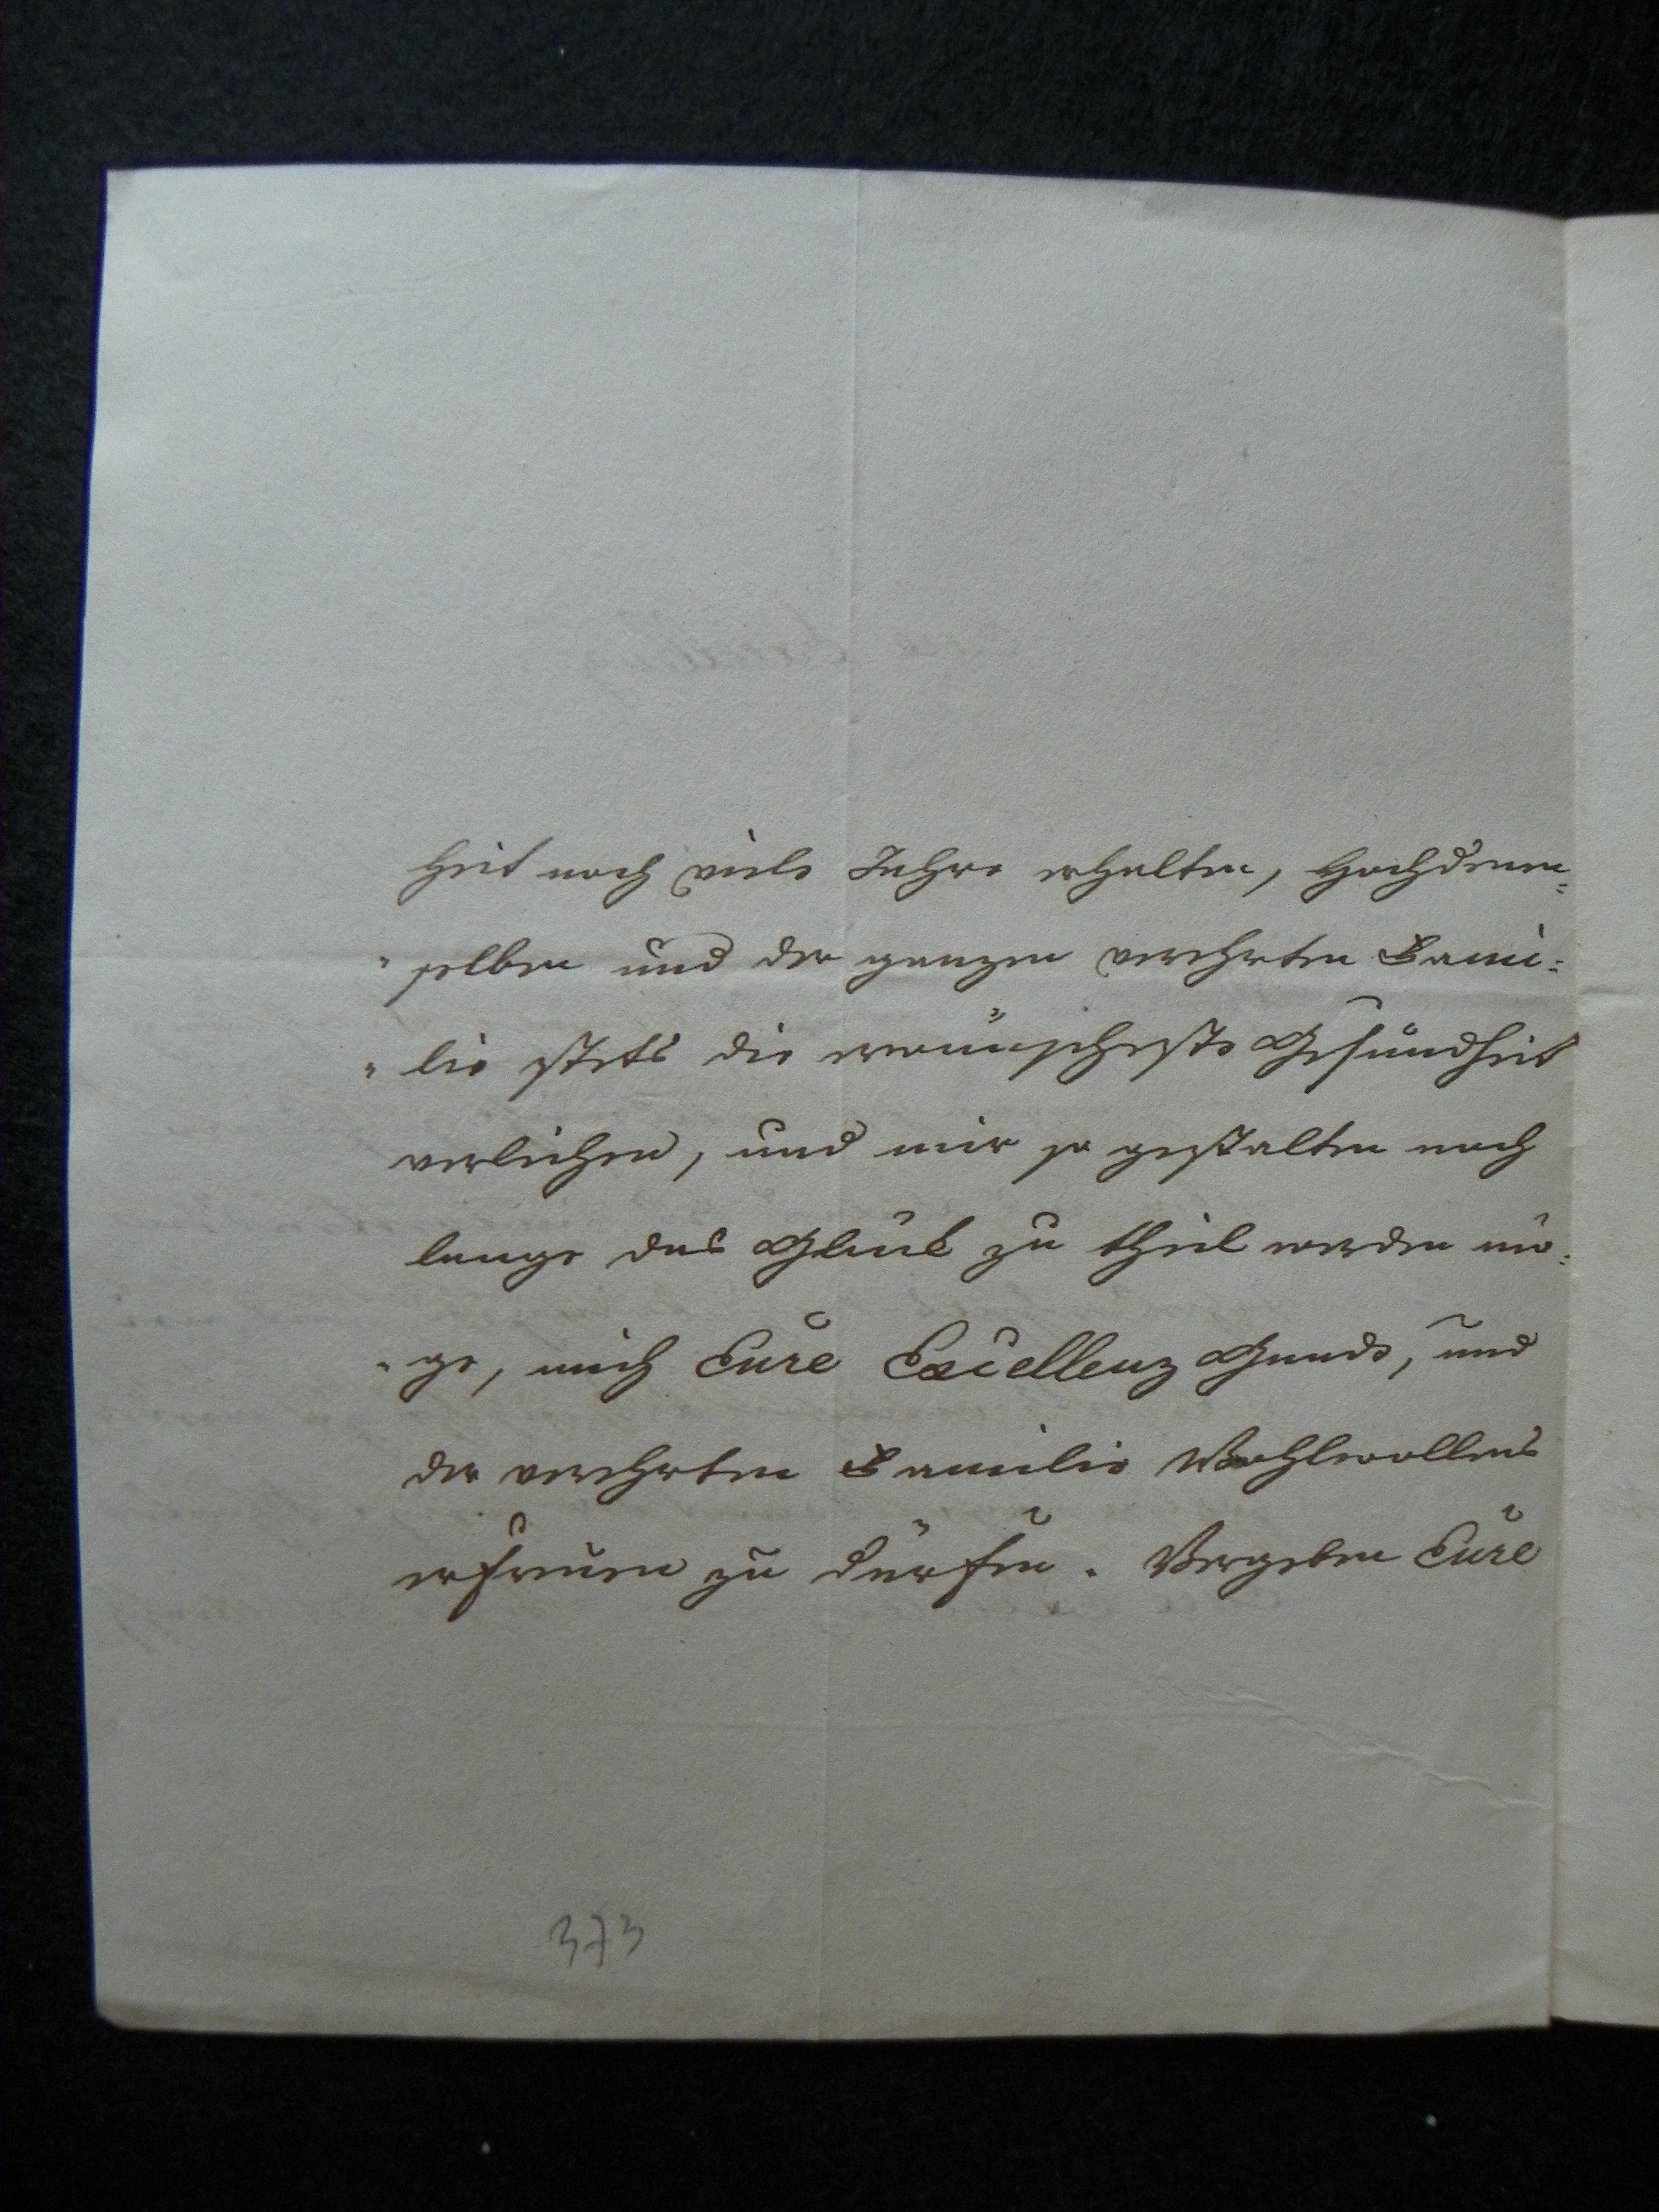 heit noch viele Jahre erhalten, Hochdenen=
"selben und der ganzen verehrten Fami=
"lie stets die erwünscheste Gesundheit
verleihen, und mir so gestalten noch
lange das Glück zu theil werden mö=
"ge, mich Eure Excellenz Gnade, und
der verehrten Familie Wohlwollens
erfreuen zu dürfen. Vergeben Eure
373